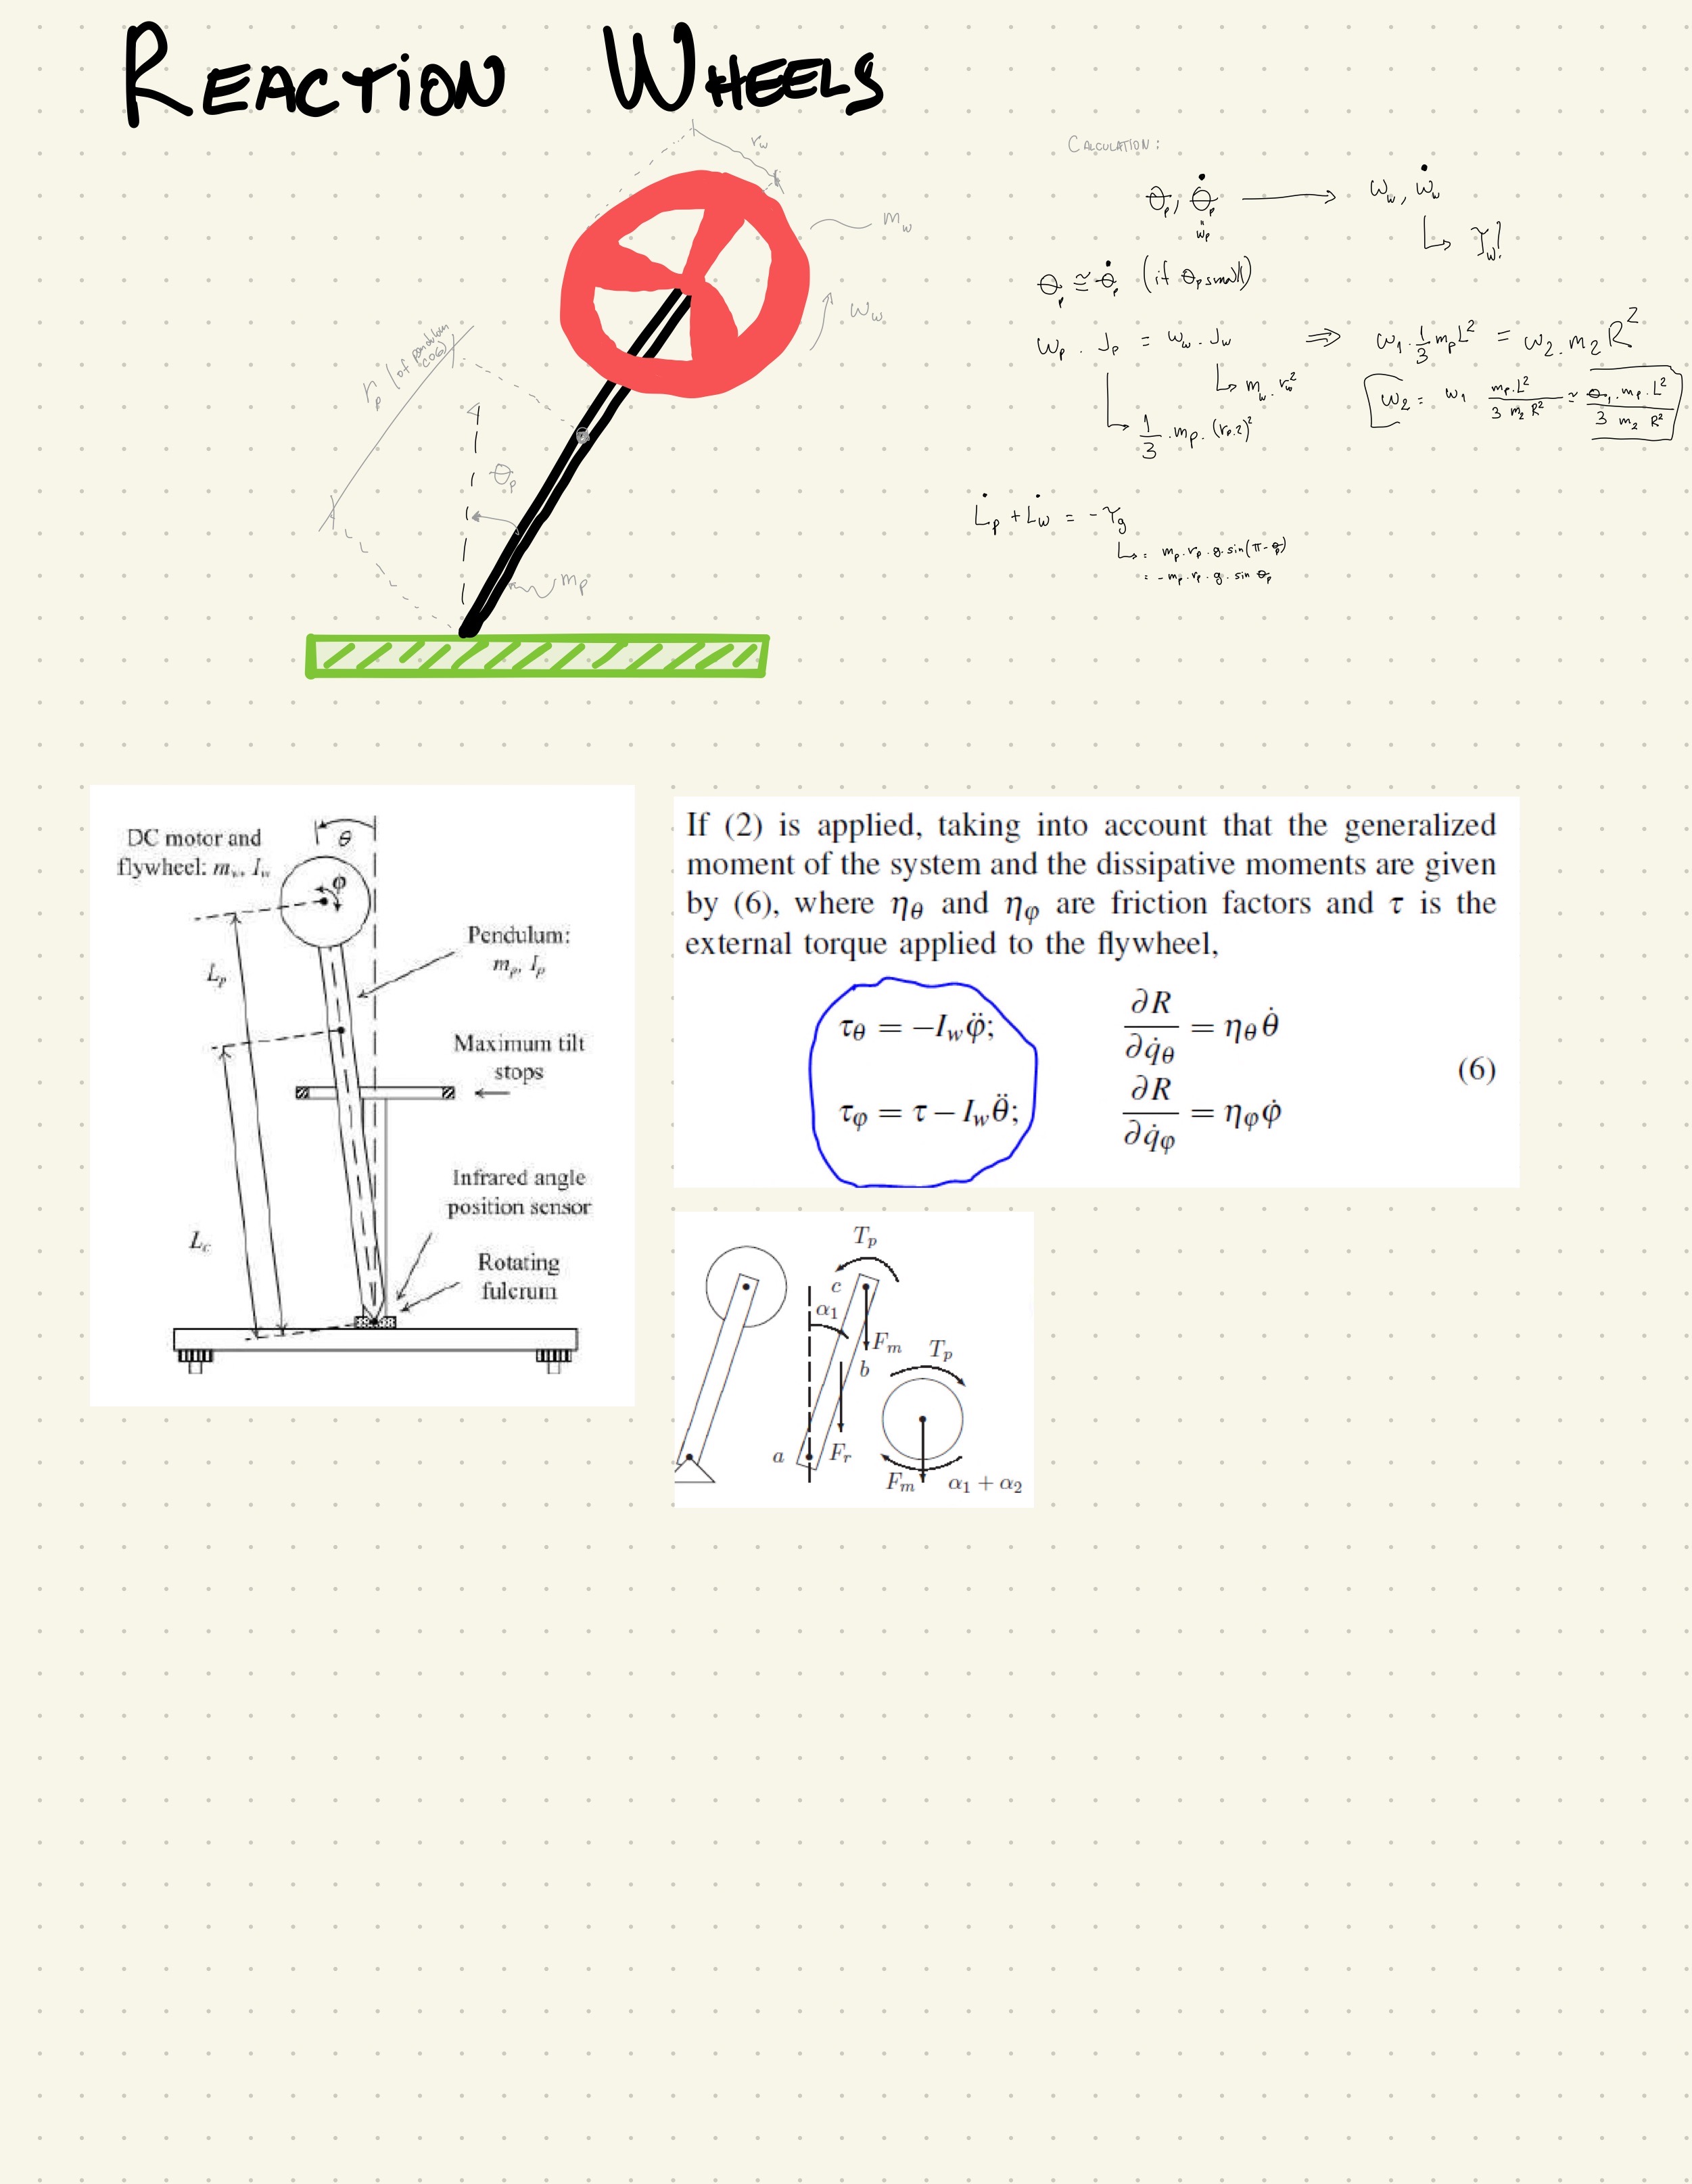 REACTION WHEELS
r_w
m_w
ω_w
r_p (of pendulum COG)
θ_p
m_p
CALCULATION:
θ_p, θ̇_p ⟶ ω_w, ω̇_w
" w_p
↳ τ_w!
θ_p ≅ θ̇_p (if θ_p small)
ω_p · J_p = ω_w · J_w ⇒ ω_1 · 1/3 m_p L² = ω_2 · m_2 R²
↳ m_w · r_w²
↳ 1/3 · m_p · (r_p·2)²
ω_2 = ω_1 m_p·L² / 3 m_2 R² ≃ θ_1 · m_p · L² / 3 m_2 R²
L̇_p + L̇_w = -τ_g
↳ = m_p · r_p · g · sin(π-θ_p)
= -m_p · r_p · g · sin θ_p
DC motor and
flywheel: m_w, I_w
θ
φ
Pendulum:
m_p, I_p
L_p
Maximum tilt
stops
Infrared angle
position sensor
L_c
Rotating
fulcrum
If (2) is applied, taking into account that the generalized
moment of the system and the dissipative moments are given
by (6), where η_θ and η_φ are friction factors and τ is the
external torque applied to the flywheel,
τ_θ = −I_w φ̈; ∂R/∂q̇_θ = η_θ θ̇
(6)
τ_φ = τ − I_w θ̈; ∂R/∂q̇_φ = η_φ φ̇
T_p
c
α_1
F_m
T_p
b
a
F_r
F_m
α_1 + α_2